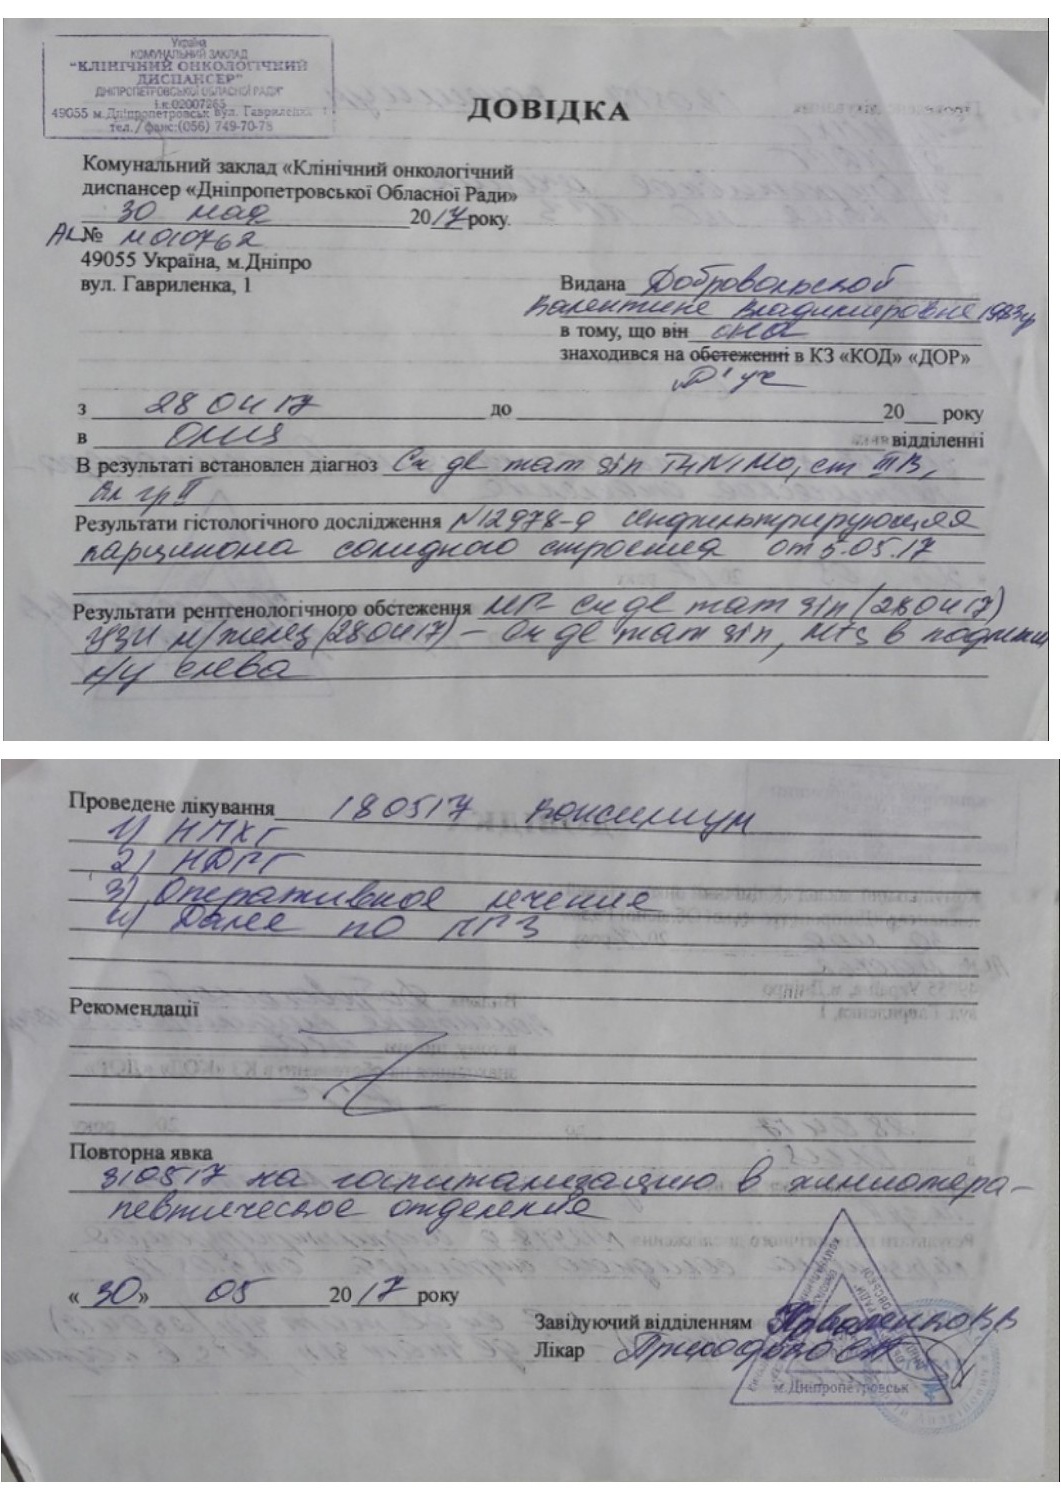 Україна
КОМУНАЛЬНИЙ ЗАКЛАД
"КЛІНІЧНИЙ ОНКОЛОГІЧНИЙ
ДИСПАНСЕР"
ДНІПРОПЕТРОВСЬКОЇ ОБЛАСНОЇ РАДИ"
і.к.02007265
49055 м.Дніпропетровськ вул. Гавриленка 1
тел./факс:(056) 749-70-78
ДОВІДКА
Комунальний заклад «Клінічний онкологічний
диспансер «Дніпропетровської Обласної Ради»
30 мая 2017 року.
№ М010762
49055 Україна, м.Дніпро
вул. Гавриленка, 1
Видана Добровольской
Валентине Владимировне
в тому, що він она
знаходився на обстеженні в КЗ «КОД» «ДОР»
з 28 04 17 до 20 року
в відділенні
В результаті встановлен діагноз Cr de mam sin T4N1M0, ст III B,
гр II
Результати гістологічного дослідження N12978-9 инфильтрирующая
карцинома солидного строения от 5.05.17
Результати рентгенологічного обстеження МГ- Cr de mam sin (28 04 17)
УЗИ м/желез (28 04 17) – Cr de mam sin, Mts в
л/у слева
Проведене лікування 18 05 17 Консилиум
1) НПХТ
2) НДГТ
3) Оперативное лечение
4) Далее по ПГЗ
Рекомендації
Повторна явка
31 05 17 на госпитализацию в химиотера-
певтическое отделение
«30» 05 2017 року
Завідуючий відділенням
Лікар
м.Дніпропетровськ